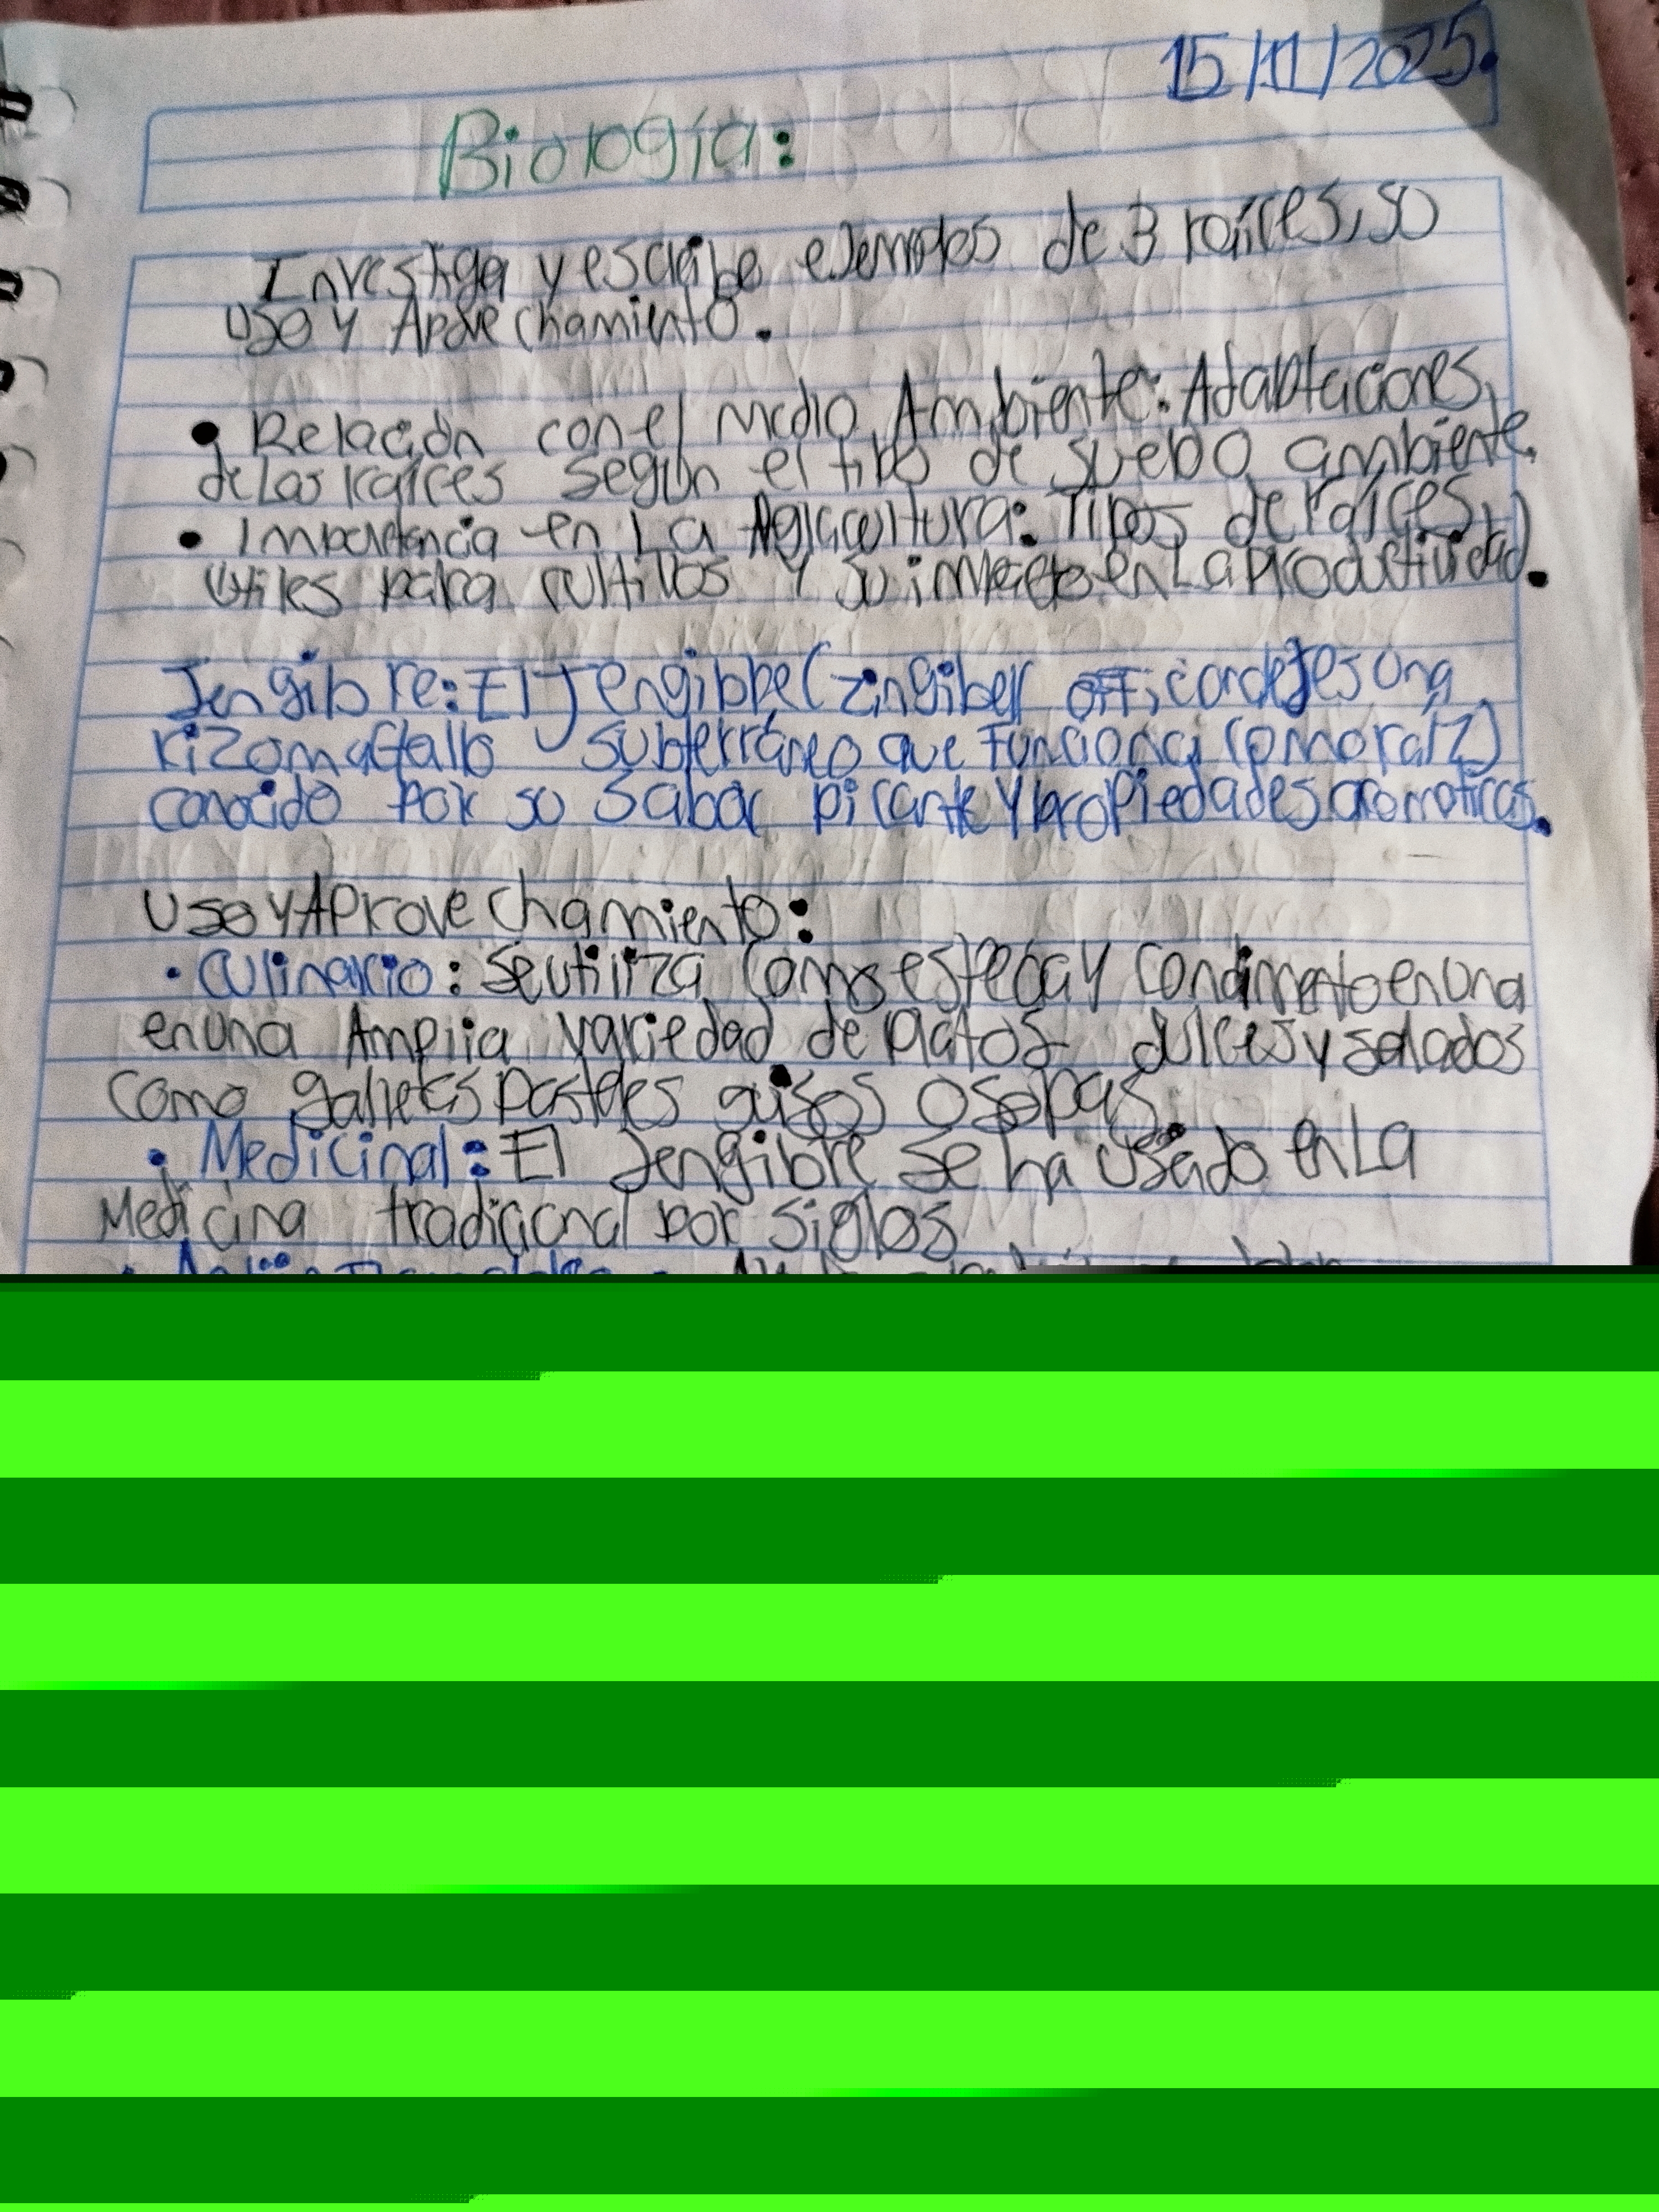 15/11/2025.
Biología:
Investiga y escribe ejemplos de 3 raíces, so
uso y Aprovechamiento.
• Relación con el medio Ambiente: Adaptaciones
de las raíces según el tipo de suelo ambiente.
• Importancia en La Agricultura: Tipos de raíces
útiles para cultivos y su impacto en La Productividad.
Jengibre: El Jengibre (Zingiber es una
rizoma (tallo subterráneo que funciona como raíz)
conocido por su sabor picante y propiedades aromaticas.
Uso y Aprovechamiento:
• Culinario: Se utiliza como y condimento en una
en una Amplia variedad de platos dulces y salados
como galletas pasteles guisos o sopas.
• Medicinal: El Jengibre se ha usado en La
Medicina tradicional por siglos